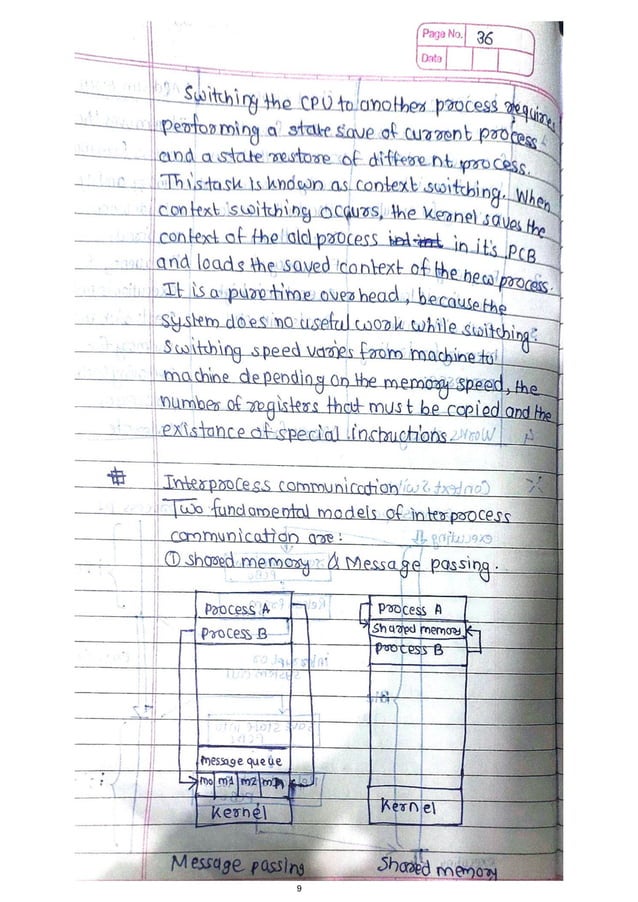 Page No. 36
Date
Switching the CPU to another process requires
performing a state save of current process
and a state restore of different process.
This task is known as context switching. When
context switching occurs, the Kernel saves the
context of the old process in it's PCB
and loads the saved context of the new process.
It is a pure time overhead, because the
system does no useful work while switching.
Switching speed varies from machine to
machine depending on the memory speed, the
number of registers that must be copied and the
existance of special instructions.
# Interprocess communication
Two fundamental models of interprocess
communication are:
① shared memory & Message passing.
Process A
Process B
message queue
m0 m1 m2 mn
Kernel
Message passing
Process A
Shared memory
Process B
Kernel
Shared memory
9